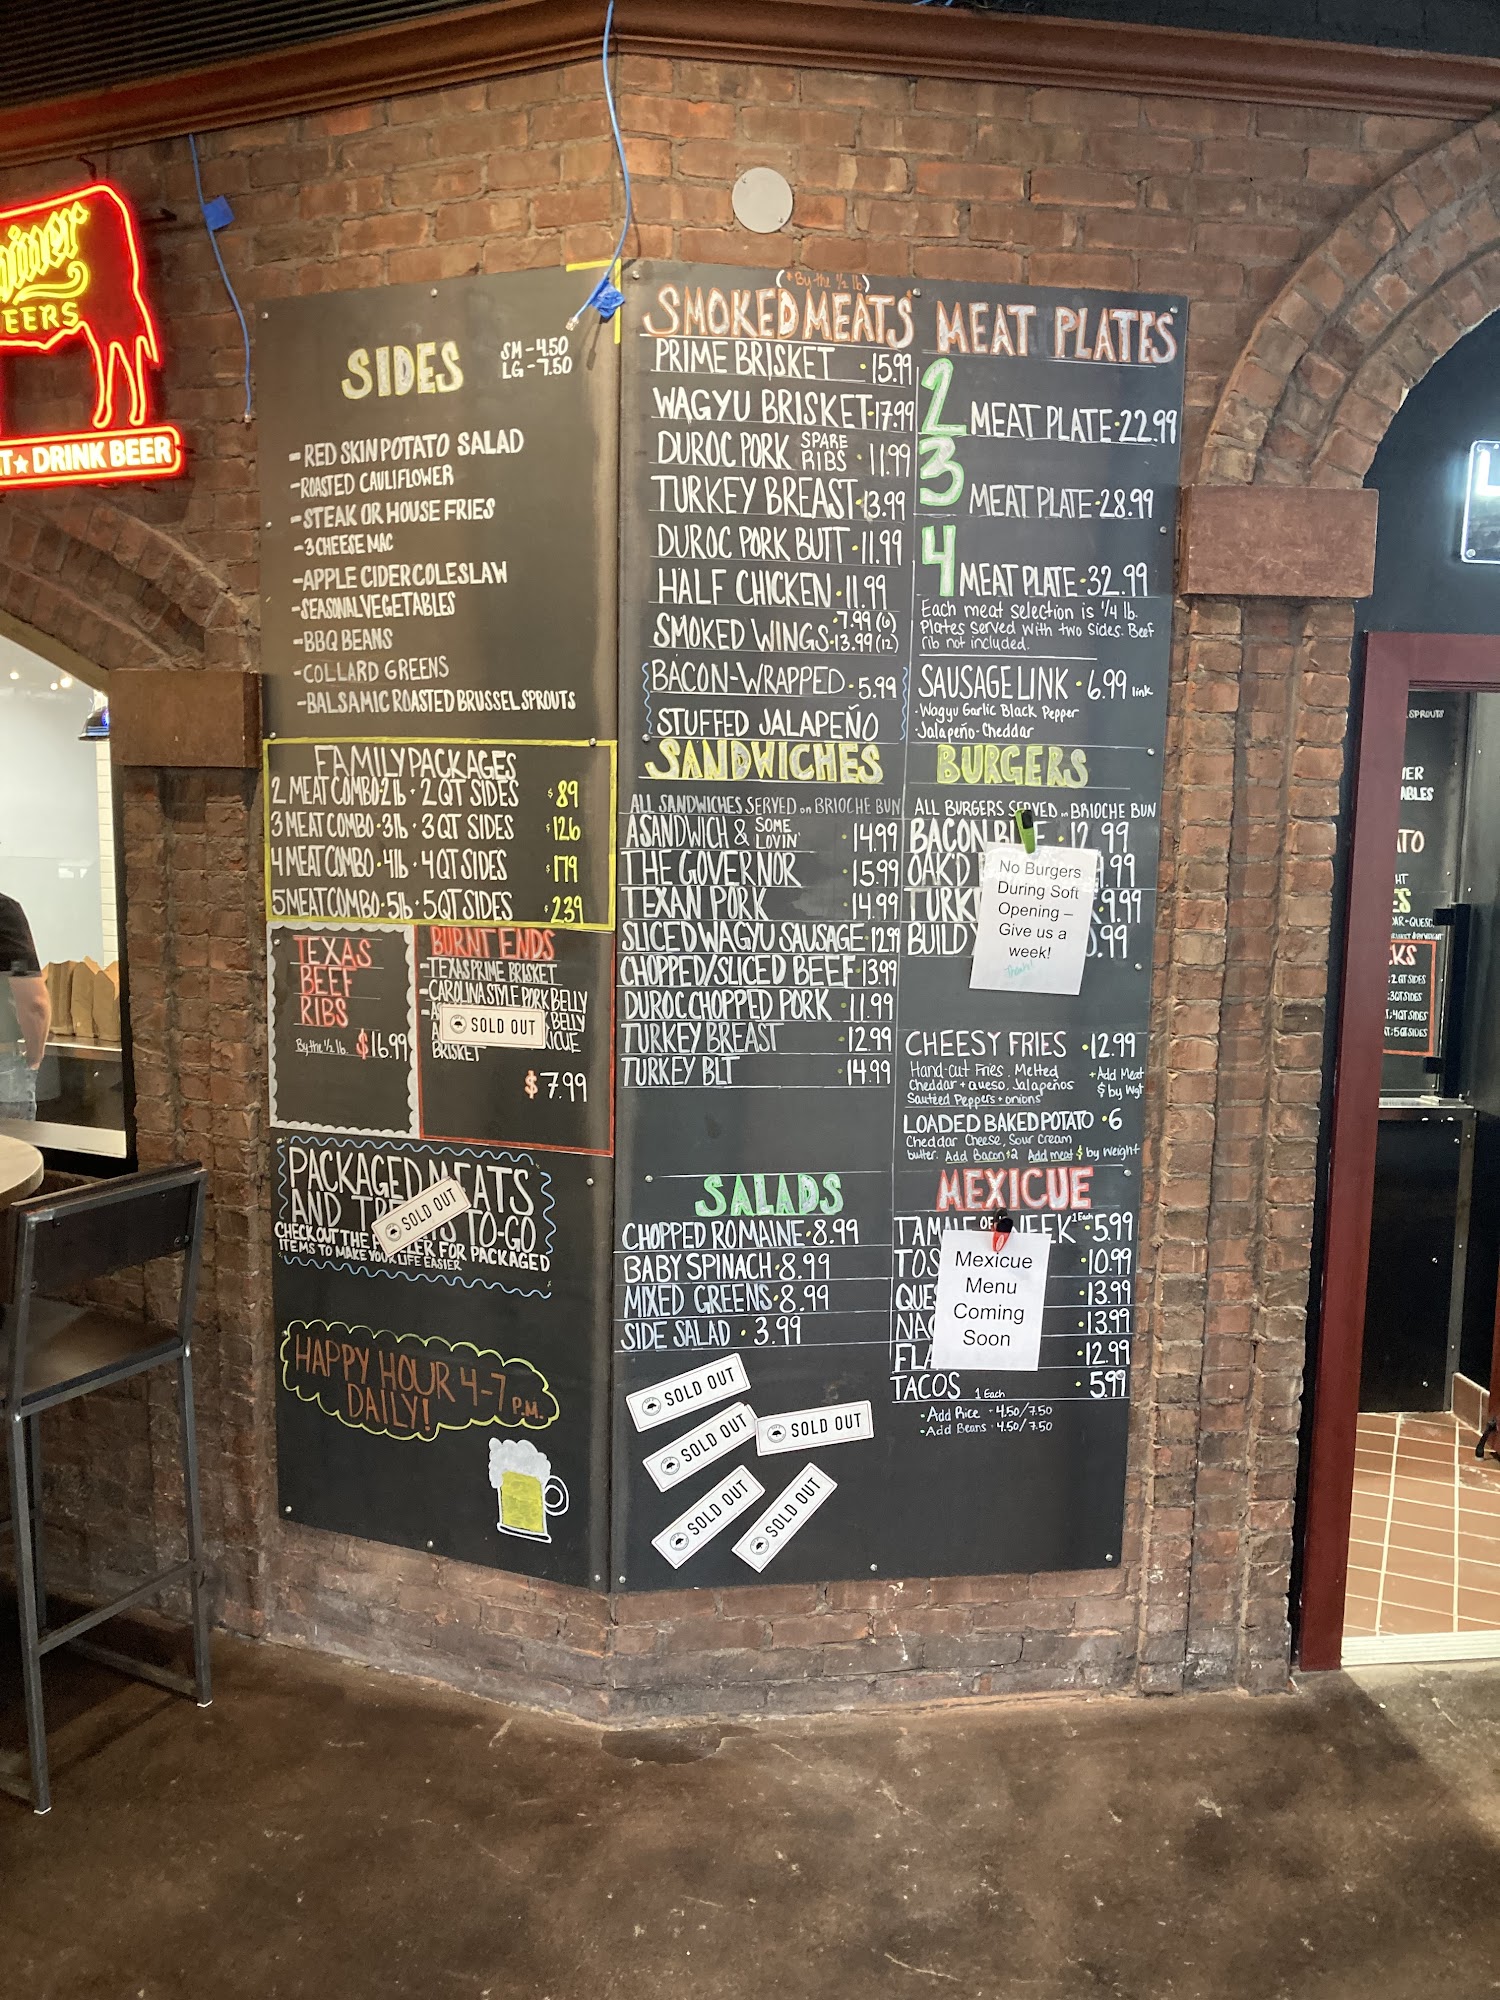 EERS
DRINK BEER
SIDES
SM - 4.50
LG - 7.50
- RED SKIN POTATO SALAD
- ROASTED CAULIFLOWER
- STEAK OR HOUSE FRIES
- 3 CHEESE MAC
- APPLE CIDER COLESLAW
- SEASONAL VEGETABLES
- BBQ BEANS
- COLLARD GREENS
- BALSAMIC ROASTED BRUSSEL SPROUTS
FAMILY PACKAGES
2 MEAT COMBO · 2 lb · 2 QT SIDES $89
3 MEAT COMBO · 3 lb · 3 QT SIDES $126
4 MEAT COMBO · 4 lb · 4 QT SIDES $179
5 MEAT COMBO · 5 lb · 5 QT SIDES $239
TEXAS
BEEF
RIBS
By the 1/2 lb. $16.99
BURNT ENDS
- TEXAS PRIME BRISKET
- CAROLINA STYLE PORK BELLY
BELLY
SOLD OUT
BRISKET
$7.99
PACKAGED MEATS
AND TO-GO
SOLD OUT
CHECK OUT THE FOR PACKAGED
ITEMS TO MAKE YOUR LIFE EASIER
HAPPY HOUR 4-7 P.M.
DAILY!
(* By the 1/2 lb)
SMOKED MEATS
PRIME BRISKET · 15.99
WAGYU BRISKET · 17.99
DUROC PORK SPARE RIBS · 11.99
TURKEY BREAST · 13.99
DUROC PORK BUTT · 11.99
HALF CHICKEN · 11.99
7.99 (6)
SMOKED WINGS · 13.99 (12)
BACON-WRAPPED · 5.99
STUFFED JALAPEÑO
MEAT PLATES
2 MEAT PLATE · 22.99
3 MEAT PLATE · 28.99
4 MEAT PLATE · 32.99
Each meat selection is 1/4 lb.
Plates served with two sides. Beef
rib not included.
SAUSAGE LINK · 6.99 link
· Wagyu Garlic Black Pepper
· Jalapeño-Cheddar
SANDWICHES
ALL SANDWICHES SERVED on BRIOCHE BUN
A SANDWICH & SOME LOVIN' · 14.99
THE GOVERNOR · 15.99
TEXAN PORK · 14.99
SLICED WAGYU SAUSAGE · 12.99
CHOPPED/SLICED BEEF · 13.99
DUROC CHOPPED PORK · 11.99
TURKEY BREAST · 12.99
TURKEY BLT · 14.99
BURGERS
ALL BURGERS SERVED on BRIOCHE BUN
BACON · 12.99
OAK'D .99
9.99
BUILD .99
No Burgers
During Soft
Opening –
Give us a
week!
CHEESY FRIES · 12.99
Hand-cut Fries, Melted
Cheddar + queso, Jalapeños
Sautéed Peppers + onions
+ Add Meat
$ by Wgt
LOADED BAKED POTATO · 6
Cheddar Cheese, Sour Cream
butter. Add Bacon $2 Add meat $ by weight
SALADS
CHOPPED ROMAINE · 8.99
BABY SPINACH · 8.99
MIXED GREENS · 8.99
SIDE SALAD · 3.99
SOLD OUT
SOLD OUT
SOLD OUT
SOLD OUT
SOLD OUT
MEXICUE
TAMALE OF WEEK 1 Each · 5.99
· 10.99
· 13.99
· 13.99
· 12.99
TACOS 1 Each · 5.99
Mexicue
Menu
Coming
Soon
· Add Rice · 4.50/7.50
· Add Beans · 4.50/7.50